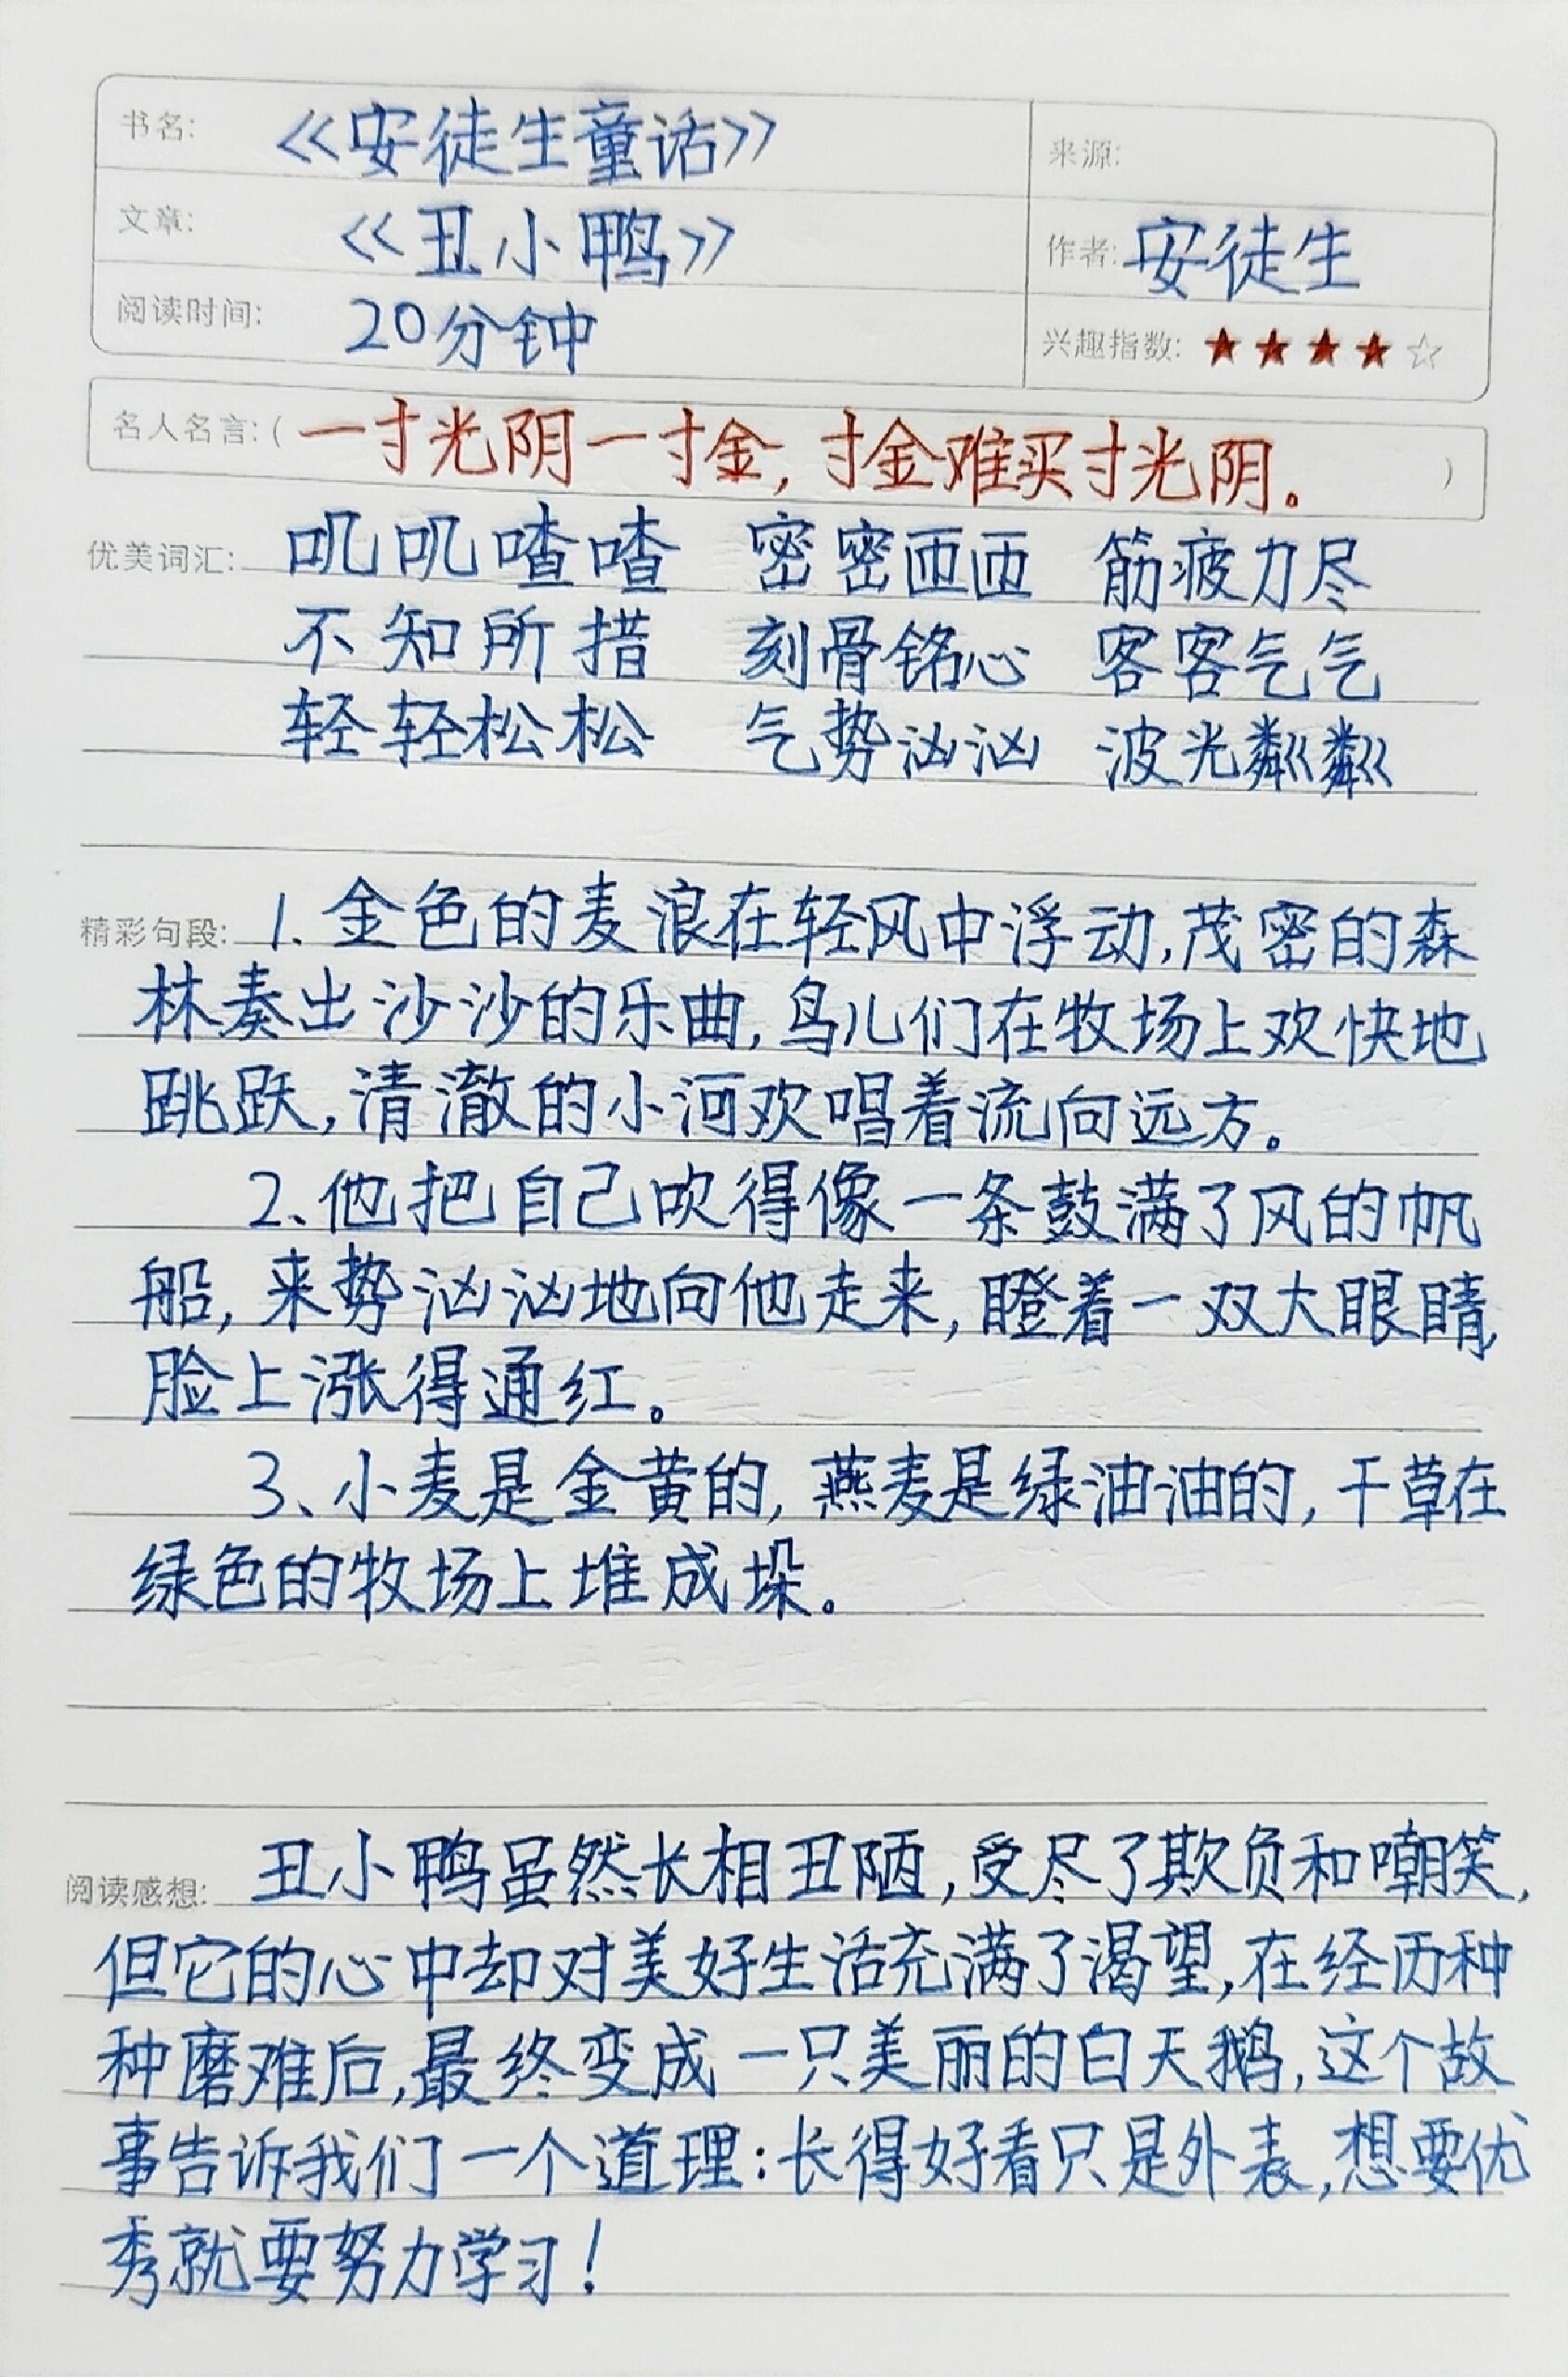 书名: 《安徒生童话》
来源:
文章: 《丑小鸭》
作者: 安徒生
阅读时间: 20分钟
兴趣指数: ★★★★☆
名人名言:( 一寸光阴一寸金,寸金难买寸光阴。 )
优美词汇: 叽叽喳喳 密密匝匝 筋疲力尽
不知所措 刻骨铭心 客客气气
轻轻松松 气势汹汹 波光粼粼
精彩句段: 1.金色的麦浪在轻风中浮动,茂密的森
林奏出沙沙的乐曲,鸟儿们在牧场上欢快地
跳跃,清澈的小河欢唱着流向远方。
2、他把自己吹得像一条鼓满了风的帆
船,来势汹汹地向他走来,瞪着一双大眼睛,
脸上涨得通红。
3、小麦是金黄的,燕麦是绿油油的,干草在
绿色的牧场上堆成垛。
阅读感想: 丑小鸭虽然长相丑陋,受尽了欺负和嘲笑,
但它的心中却对美好生活充满了渴望,在经历种
种磨难后,最终变成一只美丽的白天鹅,这个故
事告诉我们一个道理:长得好看只是外表,想要优
秀就要努力学习!